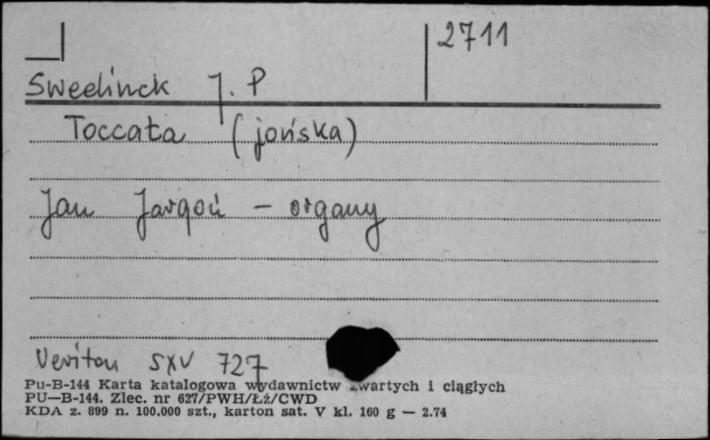 2711
Sweelinck J. P
Toccata (jońska)
Jan Jargoń - organy
Veriton SXV 727
Pu-B-144 Karta katalogowa wydawnictw zwartych i ciągłych
PU—B-144. Zlec. nr 627/PWH/Łż/CWD
KDA z. 899 n. 100.000 szt., karton sat. V kl. 160 g — 2.74